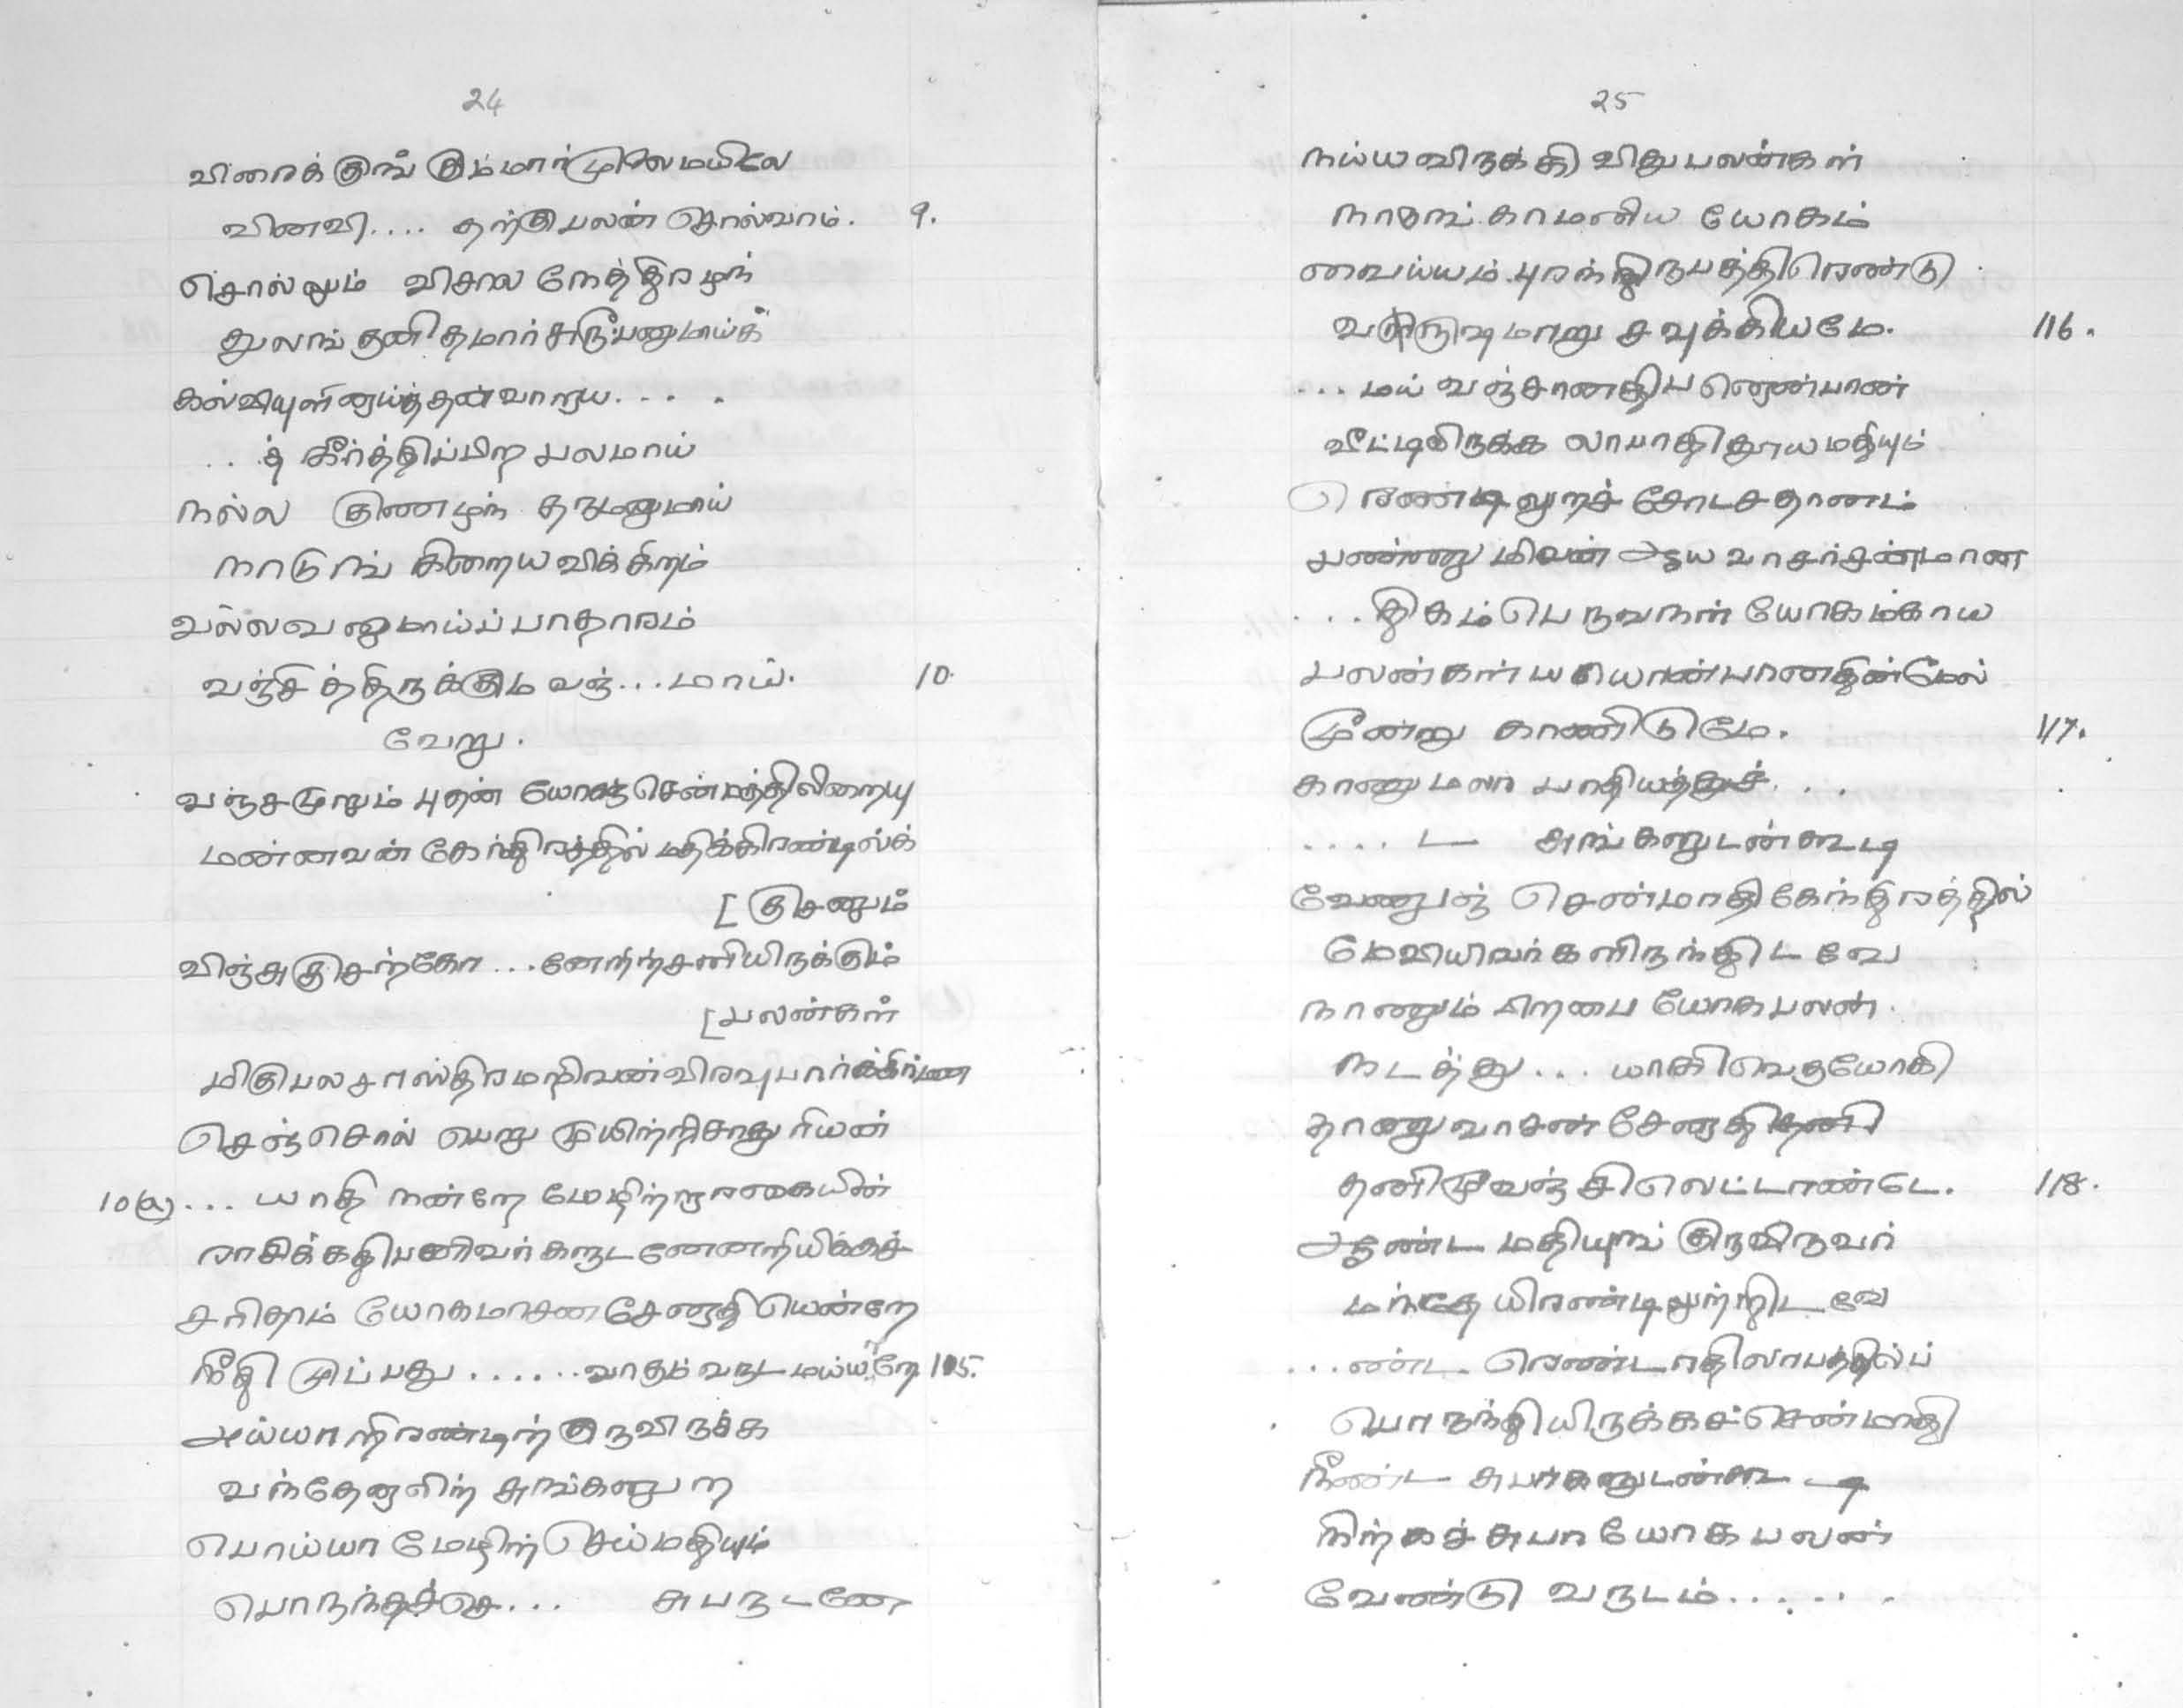 24
விரைக் குங் கும்மார்முலைமயிலே
வினவி.... தற்குபலன் சொல்வாம். 9.
சொல்லும் விசால நேத்திரமுந்
துலங் குனிதமார் சுரூபனுமாய்க்
கல்வியுளினுய்த்தன்வாறாய....
...த் கீர்த்திப்பிற பலமாய்
நல்ல குணமுந் தருமனுமாய்
நாடுங் கிறைய விக்கிறம்
வல்லவனுமாய்ப் பாதாரம்
வஞ்சித்திருக்குமவஞ்...மாய். 10.
வேறு.
வஞ்சமுறும் புதன் யோகஞ்சென்மத்திலிறையு
மண்ணவன் கேந்திரத்தில் மதிக்கிரண்டில்க்
[குசனும்
விஞ்சுகுசற்கோ...னேரிற்சனியிருக்கும்
[பலன்கள்
மிகுபல சாஸ்திரமறிவன்விரவுபார்க்கிர்மண
செஞ்சொல் பெறு முயிற்றிசாதுரியன்
10(a)... யாதி நன்றே மேழிற்றாரகையின்
ராசிக்கதிபனிவர்களுடனேனறியிக்கச்
சரிதாம் யோகமாசன சேனாதி யென்றே
நீதி முப்பது......வாதம் வருடமய்யன்றே 115.
அய்யாறிரண்டிற் குருவிருக்க
வந்தேளுளிற் சுங்கனுற
பொய்யா மேழிற் செய்மதியும்
பொருந்தச்செ... சுபருடனே
25
நய்யவிருக்கி விதுபலன்கள்
நாடுங் காமனிய யோகம்
வைய்யம் புரந்திருபத்திரெண்டு
வருருஷமாறு சவுக்கியமே. 116.
...மய் வஞ்சானதிப னெண்பான்
வீட்டிலிருக்க லாபாதிதூயமதியும்
ரெண்டிலுறச் சோடசதானம்
பண்ணு மிவன் ஆய வாசர்சன்மான
...திகம்பெருவாள் யோகம்காய
பலன்கள் ய யொண்பானதின்மேல்
மூன்று காணிடுமே. 117.
காணுமலா பாதியத்துச்....
.....ட சுங்கனுடன்கூடி
வேணுஞ் சென்மாதிகேந்திரத்தில்
மேவியிவர்களிருந்திடவே
நாணும் பிறபை யோகபலன்
நடத்து... யாகிவெருயோகி
தானுவாசன் சேனாதிதனி
தனிமூவஞ்சிலெட்டாண்டே. 118.
ஆண்ட மதியுங் குருவிருவர்
மந்தேயிரண்டிலுற்றிடவே
...ண்ட ரெண்டாதிலாபத்தில்ப்
பொருந்தியிருக்கச்சென்மாதி
நீண்ட சுபர்களுடன்கூடி
நிற்கச்சுபா யோகபலன்
வேண்டு வருடம்......